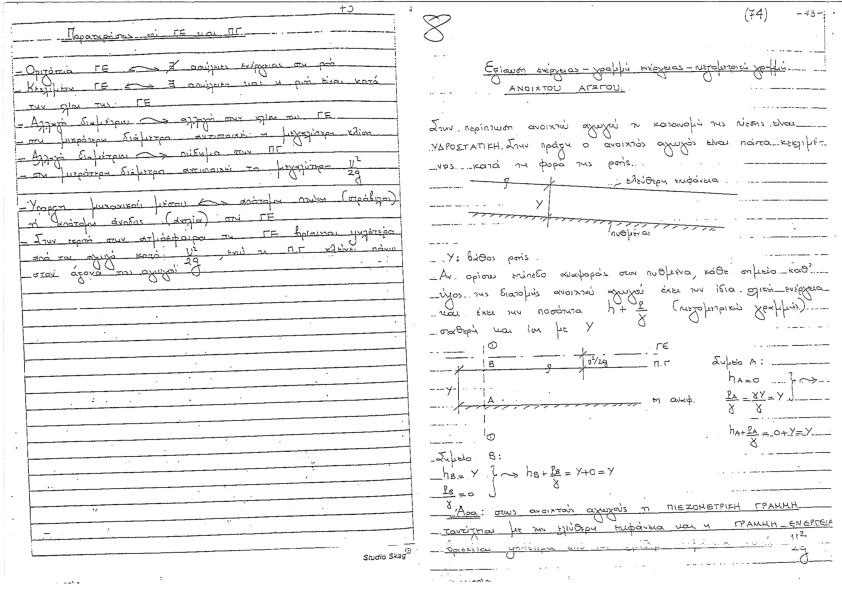 73
Παρατηρήσεις επί ΓΕ και ΠΓ
- Οριζόντια ΓΕ ⟿ ∄ απώλειες ενέργειας στη ροή
- Κεκλιμένη ΓΕ ⟿ ∃ απώλειες και η ροή είναι κατά
την κλίση της ΓΕ
- Αλλαγή διαμέτρου ⟿ αλλαγή στην κλίση της ΓΕ
- στη μικρότερη διάμετρο αντιστοιχεί η μεγαλύτερη κλίση
- Αλλαγή διαμέτρου ⟿ πήδημα στην ΠΓ
- στη μικρότερη διάμετρο αντιστοιχεί το μεγαλύτερο υ²/2g
- Ύπαρξη μηχανικού μέσου ⟿ απότομη πτώση (στρόβιλοι)
ή απότομη άνοδος (αντλία) στη ΓΕ
- Στην εκροή στην ατμόσφαιρα η ΓΕ βρίσκεται ψηλότερα
από τον αγωγό κατά υ²/2g, ενώ η ΠΓ πάνω
στον άξονα του αγωγού
Studio Skag
8
(74)
-43-
Εξίσωση ενέργειας - γραμμή ενέργειας - πιεζομετρική γραμμή
ΑΝΟΙΧΤΟΥ ΑΓΩΓΟΥ.
Στην περίπτωση ανοιχτού αγωγού η κατανομή της πίεσης είναι
ΥΔΡΟΣΤΑΤΙΚΗ. Στην πράξη ο ανοιχτός αγωγός είναι πάντα κεκλιμέ-
νος κατά τη φορά της ροής.
ελεύθερη επιφάνεια
Y
πυθμένας
Y: βάθος ροής.
- Αν ορίσω επίπεδο αναφοράς στον πυθμένα, κάθε σημείο καθ'
ύψος της διατομής ανοιχτού αγωγού έχει την ίδια ολική ενέργεια
και έχει την ποσότητα h + p/γ (πιεζομετρική γραμμή)
σταθερή και ίση με Y
① ΓΕ
B υ²/2g Π.Γ
Y
A
①
Σημείο A:
hA=0
pA/γ = γY/γ = Y
hA+pA/γ = 0+Y=Y
Σημείο B:
hB = Y
pB/γ = 0
⟿ hB + pB/γ = Y+0=Y
Άρα: στους ανοιχτούς αγωγούς η ΠΙΕΖΟΜΕΤΡΙΚΗ ΓΡΑΜΜΗ
ταυτίζεται με την ελεύθερη επιφάνεια και η ΓΡΑΜΜΗ ΕΝΕΡΓΕΙΑ
βρίσκεται ψηλότερα από την υ²/2g